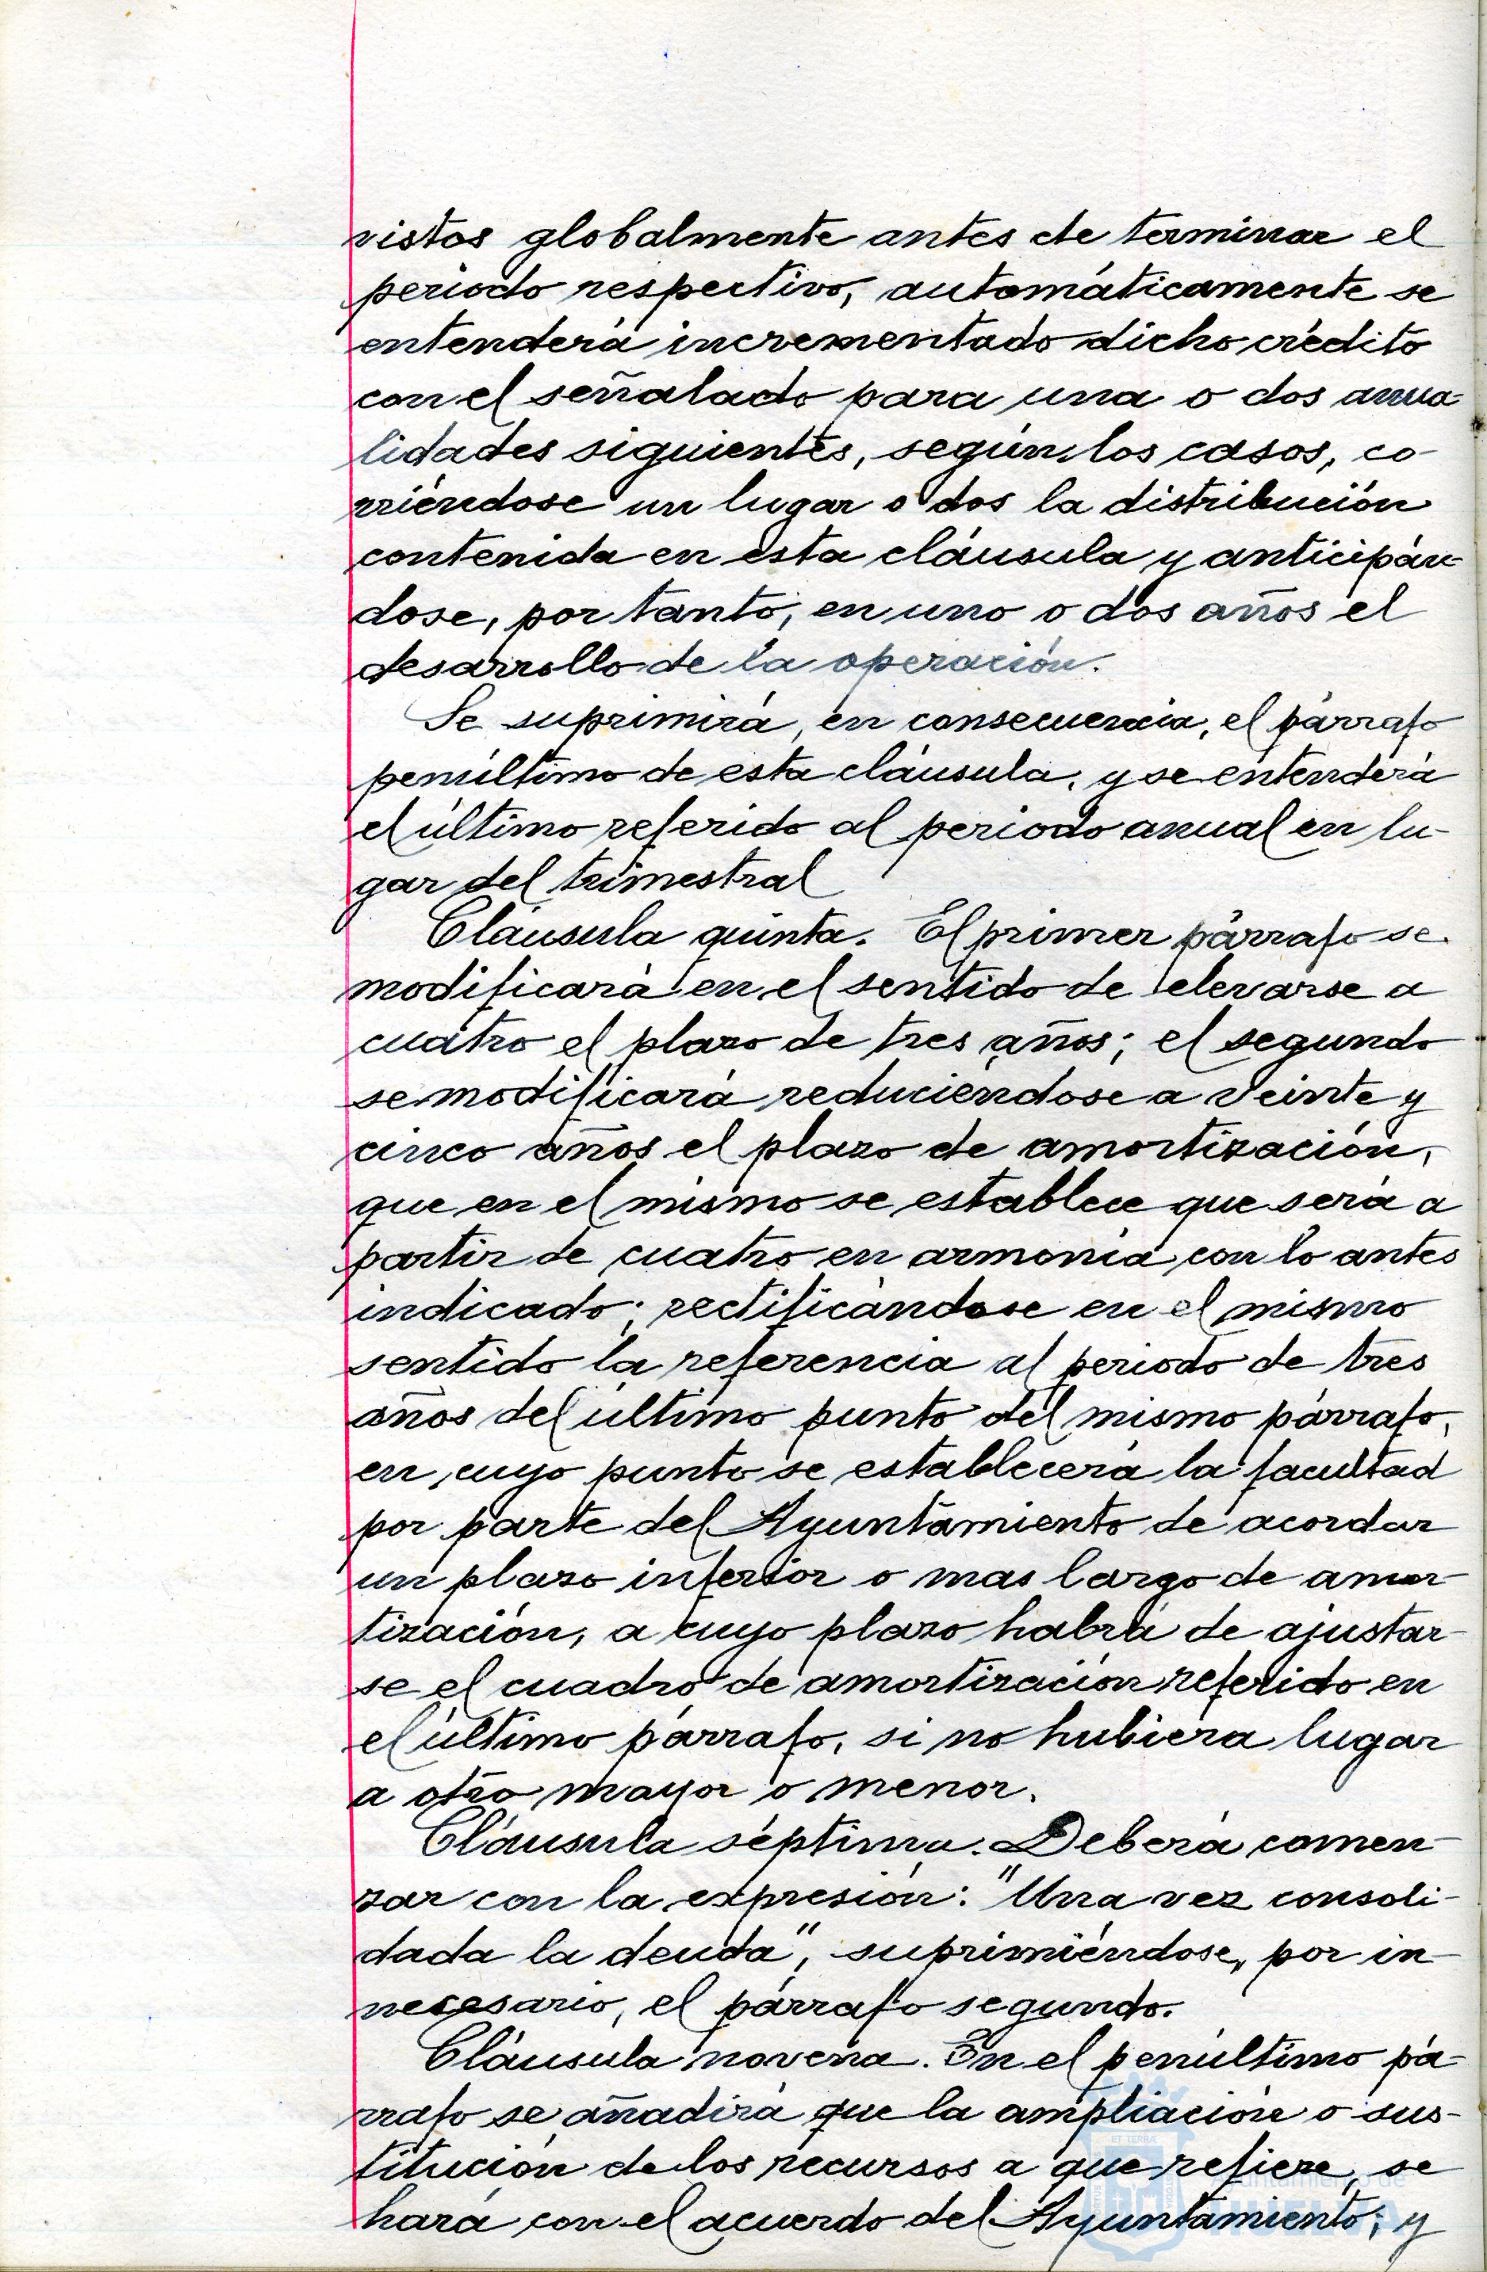 vistos globalmente antes de terminar el
periodo respectivo, automáticamente se
entenderá incrementado dicho crédito
con el señalado para una o dos anua-
lidades siguientes, según los casos, co-
rriéndose un lugar o dos la distribución
contenida en esta cláusula y anticipán-
dose, por tanto, en uno o dos años el
desarrollo de la operación.
Se suprimirá, en consecuencia, el párrafo
penúltimo de esta cláusula, y se entenderá
el último referido al periodo anual en lu-
gar del trimestral
Cláusula quinta. El primer párrafo se
modificará en el sentido de elevarse a
cuatro el plazo de tres años; el segundo
se modificará reduciéndose a veinte y
cinco años el plazo de amortización,
que en el mismo se establece que será a
partir de cuatro en armonía con lo antes
indicado; rectificándose en el mismo
sentido la referencia al periodo de tres
años del último punto del mismo párrafo,
en cuyo punto se establecerá la facultad
por parte del Ayuntamiento de acordar
un plazo inferior o mas largo de amor-
tización, a cuyo plazo habrá de ajustar-
se el cuadro de amortización referido en
el último párrafo, si no hubiera lugar
a otro mayor o menor.
Cláusula séptima. Deberá comen-
zar con la expresión: "Una vez consoli-
dada la deuda", suprimiéndose, por in-
necesario, el párrafo segundo.
Cláusula novena. En el penúltimo pá-
rrafo se añadirá que la ampliación o sus-
titución de los recursos a que refiere, se
hará con el acuerdo del Ayuntamiento; y
ET TERRÆ
Ayuntamiento de
HUELVA